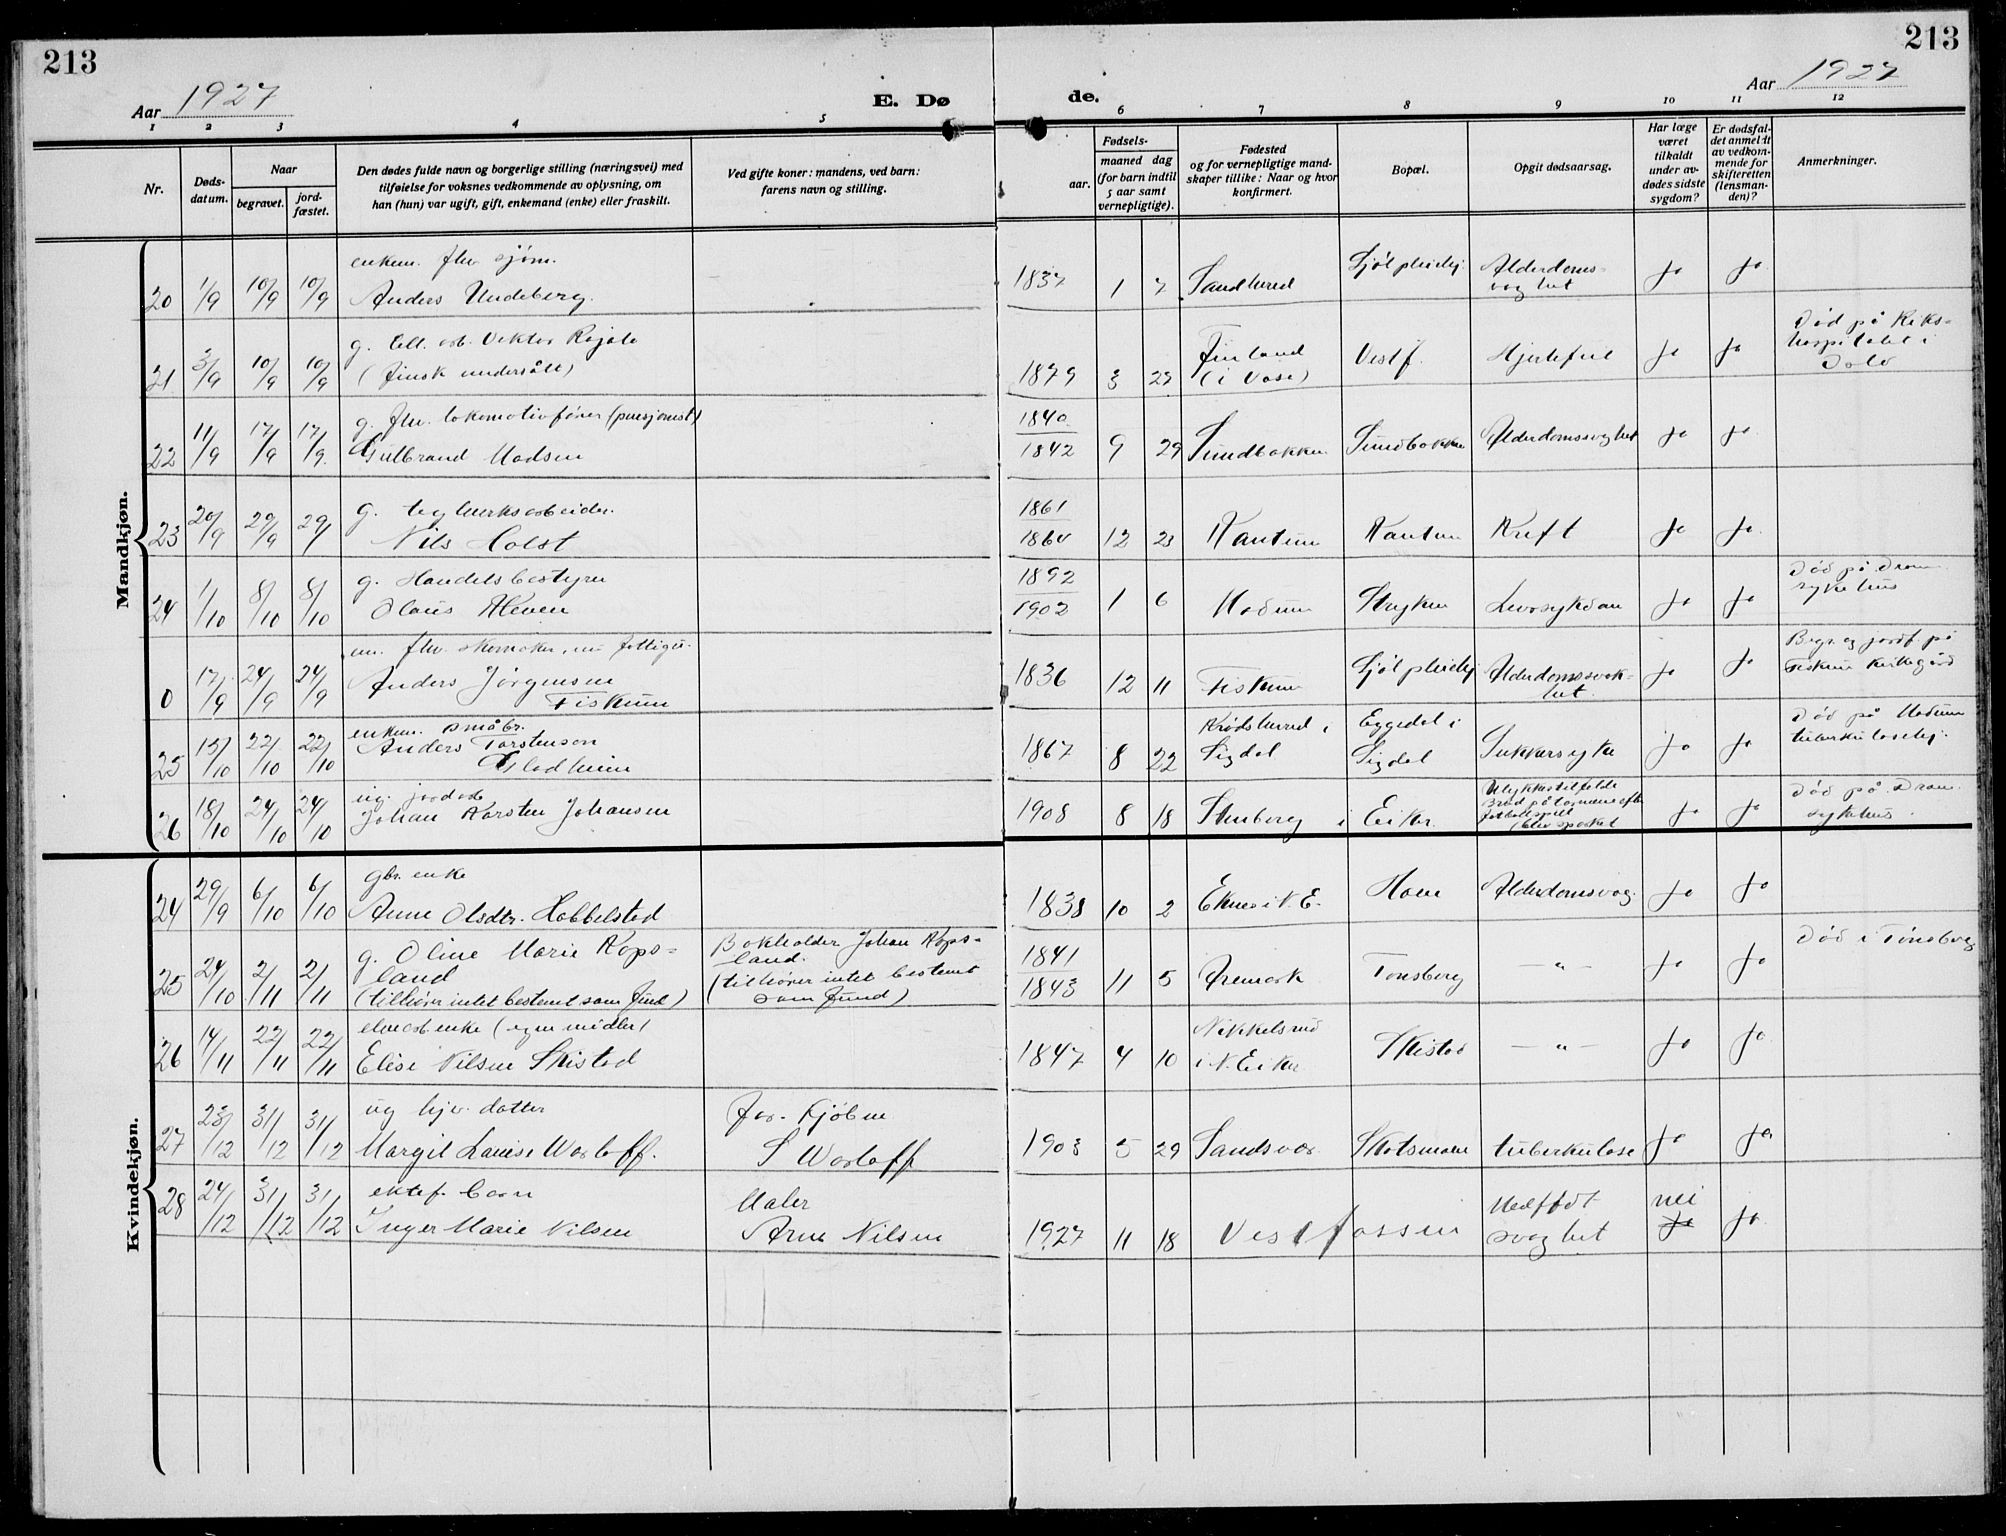 213
213
Aar 1927
E. Dø
de.
Aar 1927
1 2 3 4 5 6 7 8 9 10 11 12
Nr.
Døds-
datum.
Naar
begravet.
jord-
fæstet.
Den dødes fulde navn og borgerlige stilling (næringsvei) med
tilføielse for voksnes vedkommende av oplysning, om
han (hun) var ugift, gift, enkemand (enke) eller fraskilt.
Ved gifte koner: mandens, ved barn:
farens navn og stilling.
Fødsels-
aar.
maaned dag
(for barn indtil
5 aar samt
vernepligtige).
Fødested
og for vernepligtige mand-
skaper tillike: Naar og hvor
konfirmert.
Bopæl.
Opgit dødsaarsag.
Har læge
været
tilkaldt
under av-
dødes sidste
sygdom?
Er dødsfal-
det anmeldt
av vedkom-
mende for
skifteretten
(lensman-
den)?
Anmerkninger.
Mandkjøn.
enkem. fhv. sjøm.
20 1/9 10/9 10/9 Anders Undeberg. 1837 1 7 Sandsverd Sjøl pleiehj. Alderdoms-
svaghet ja ja
g. Cell. arb. Viktor Rajala
21. 3/9 10/9 10/9 (finsk undersått) 1879 3 27 Finland
(i Vasa) Vestf. Hjertefeil ja ja Død på Riks-
hospitalet i
Oslo
g. fhv. lokomotivfører (pensjonist)
22 11/9 17/9 17/9. Gulbrand Madsen 1840
1842 9 29 Sundbakken Sundbakken Alderdomssvaghet ja ja
g. teglverksarbeider.
23 20/9 29/9 29/ Nils Holst 1861
1864 12 23 Kantum Kantum Kreft ja ja.
g. Handelsbestyrer
24 1/10 8/10 8/10 Olaus Kleven 1892
1902 1 6 Modum Stryken Leversykdom ja ja Død på Dram.
sykehus
em. fhv. skomaker, nu fattigu.
0 17/9 24/9 24/9 Anders Jørgensen
Fiskum 1836 12 11 Fiskum Sjøl pleiehj Alderdomssvak-
het ja ja Begr. og jordf. på
Fiskum kirkegård
enkem. småbr.
25 15/10 22/10 22/10 Anders Torstenson
Gladheim 1867 8 22 Krødsherad i
Sigdal Eggedal i
Sigdal Sukkersyke ja ja Død på Modum
tuberkulosehj.
ug. jordarb
26 18/10 24/10 24/10 Johan Karsten Johansen 1908 8 18 Stenberg i Eiker. Ulykkestilfelde
Brød på tarmene efter
fotballspill
(blev sparket ja ja Død på Dram.
sykehus.
Kvindekjøn.
gbr. enke
24 29/9 6/10 6/10 Anne Olsdtr. Hobbelstad 1838 10 2 Eknes i N. E. Hoen Alderdomsvag. ja ja
25 24/10 2/11 2/11 g. Oline Marie Kops-
land
(tilhører intet bestemt samfund) Bokholder Johan Kops-
land.
(tilhører intet bestemt
samfund) 1841
1843 11 5 Aremark Tønsberg — „ — ja ja Død i Tønsberg
elvearb enke (egne midler)
26 14/11 22/11 22/11 Elise Nilsen Skistad 1847 4 10 Nikkelsrud
i N. Eiker Skistad — „ — ja ja
ug hjv. datter
27 23/12 31/12 31/12 Margit Louise Warloff. Far. Kjøbm
S Warloff 1903 5 29 Sandsvær Skotsmoen tuberkulose ja ja
ektef. barn
28 24/12 31/12 31/12 Inger Marie Nilsen Maler
Arne Nilsen 1927 11 18 Vestfossen Medfødt
svaghet nei
ja ja